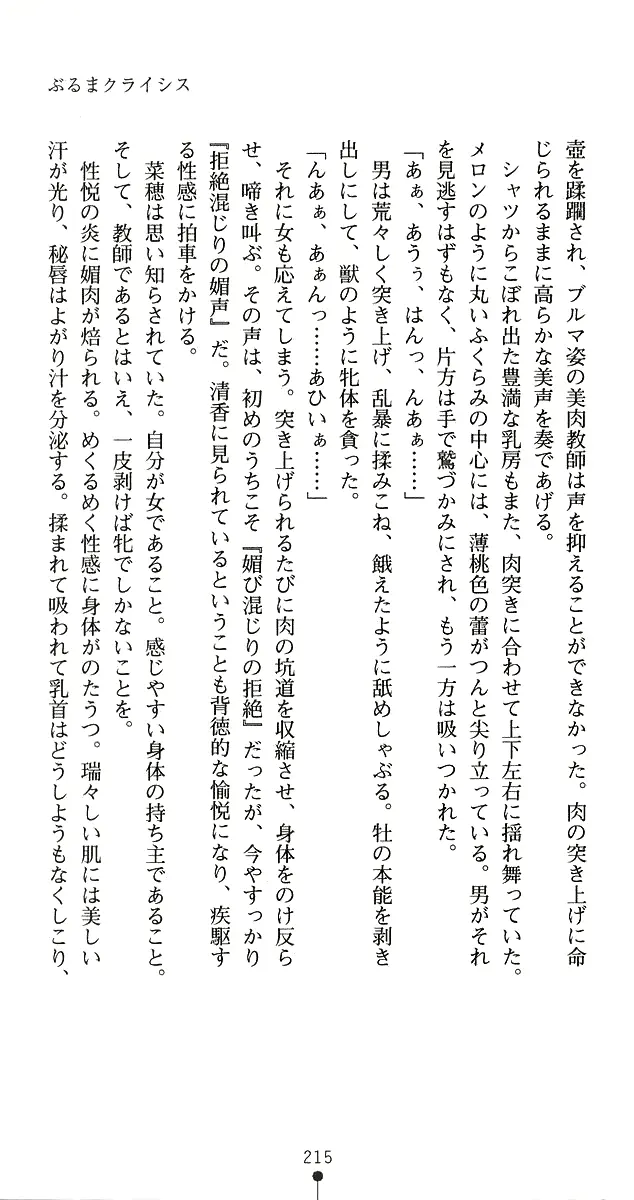 ぶるまクライシス
壺を蹂躙され、ブルマ姿の美肉教師は声を抑えることができなかった。肉の突き上げに命
じられるままに高らかな美声を奏であげる。
シャツからこぼれ出た豊満な乳房もまた、肉突きに合わせて上下左右に揺れ舞っていた。
メロンのように丸いふくらみの中心には、薄桃色の蕾がつんと尖り立っている。男がそれ
を見逃すはずもなく、片方は手で鷲づかみにされ、もう一方は吸いつかれた。
「あぁ、あうぅ、はんっ、んあぁ……」
男は荒々しく突き上げ、乱暴に揉みこね、餓えたように舐めしゃぶる。牡の本能を剥き
出しにして、獣のように牝体を貪った。
「んあぁ、あぁんっ……あひいぁ……」
それに女も応えてしまう。突き上げられるたびに肉の坑道を収縮させ、身体をのけ反ら
せ、啼き叫ぶ。その声は、初めのうちこそ『媚び混じりの拒絶』だったが、今やすっかり
『拒絶混じりの媚声』だ。清香に見られているということも背徳的な愉悦になり、疾駆す
る性感に拍車をかける。
菜穂は思い知らされていた。自分が女であること。感じやすい身体の持ち主であること。
そして、教師であるとはいえ、一皮剥けば牝でしかないことを。
性悦の炎に媚肉が焙られる。めくるめく性感に身体がのたうつ。瑞々しい肌には美しい
汗が光り、秘唇はよがり汁を分泌する。揉まれて吸われて乳首はどうしようもなくしこり、
215